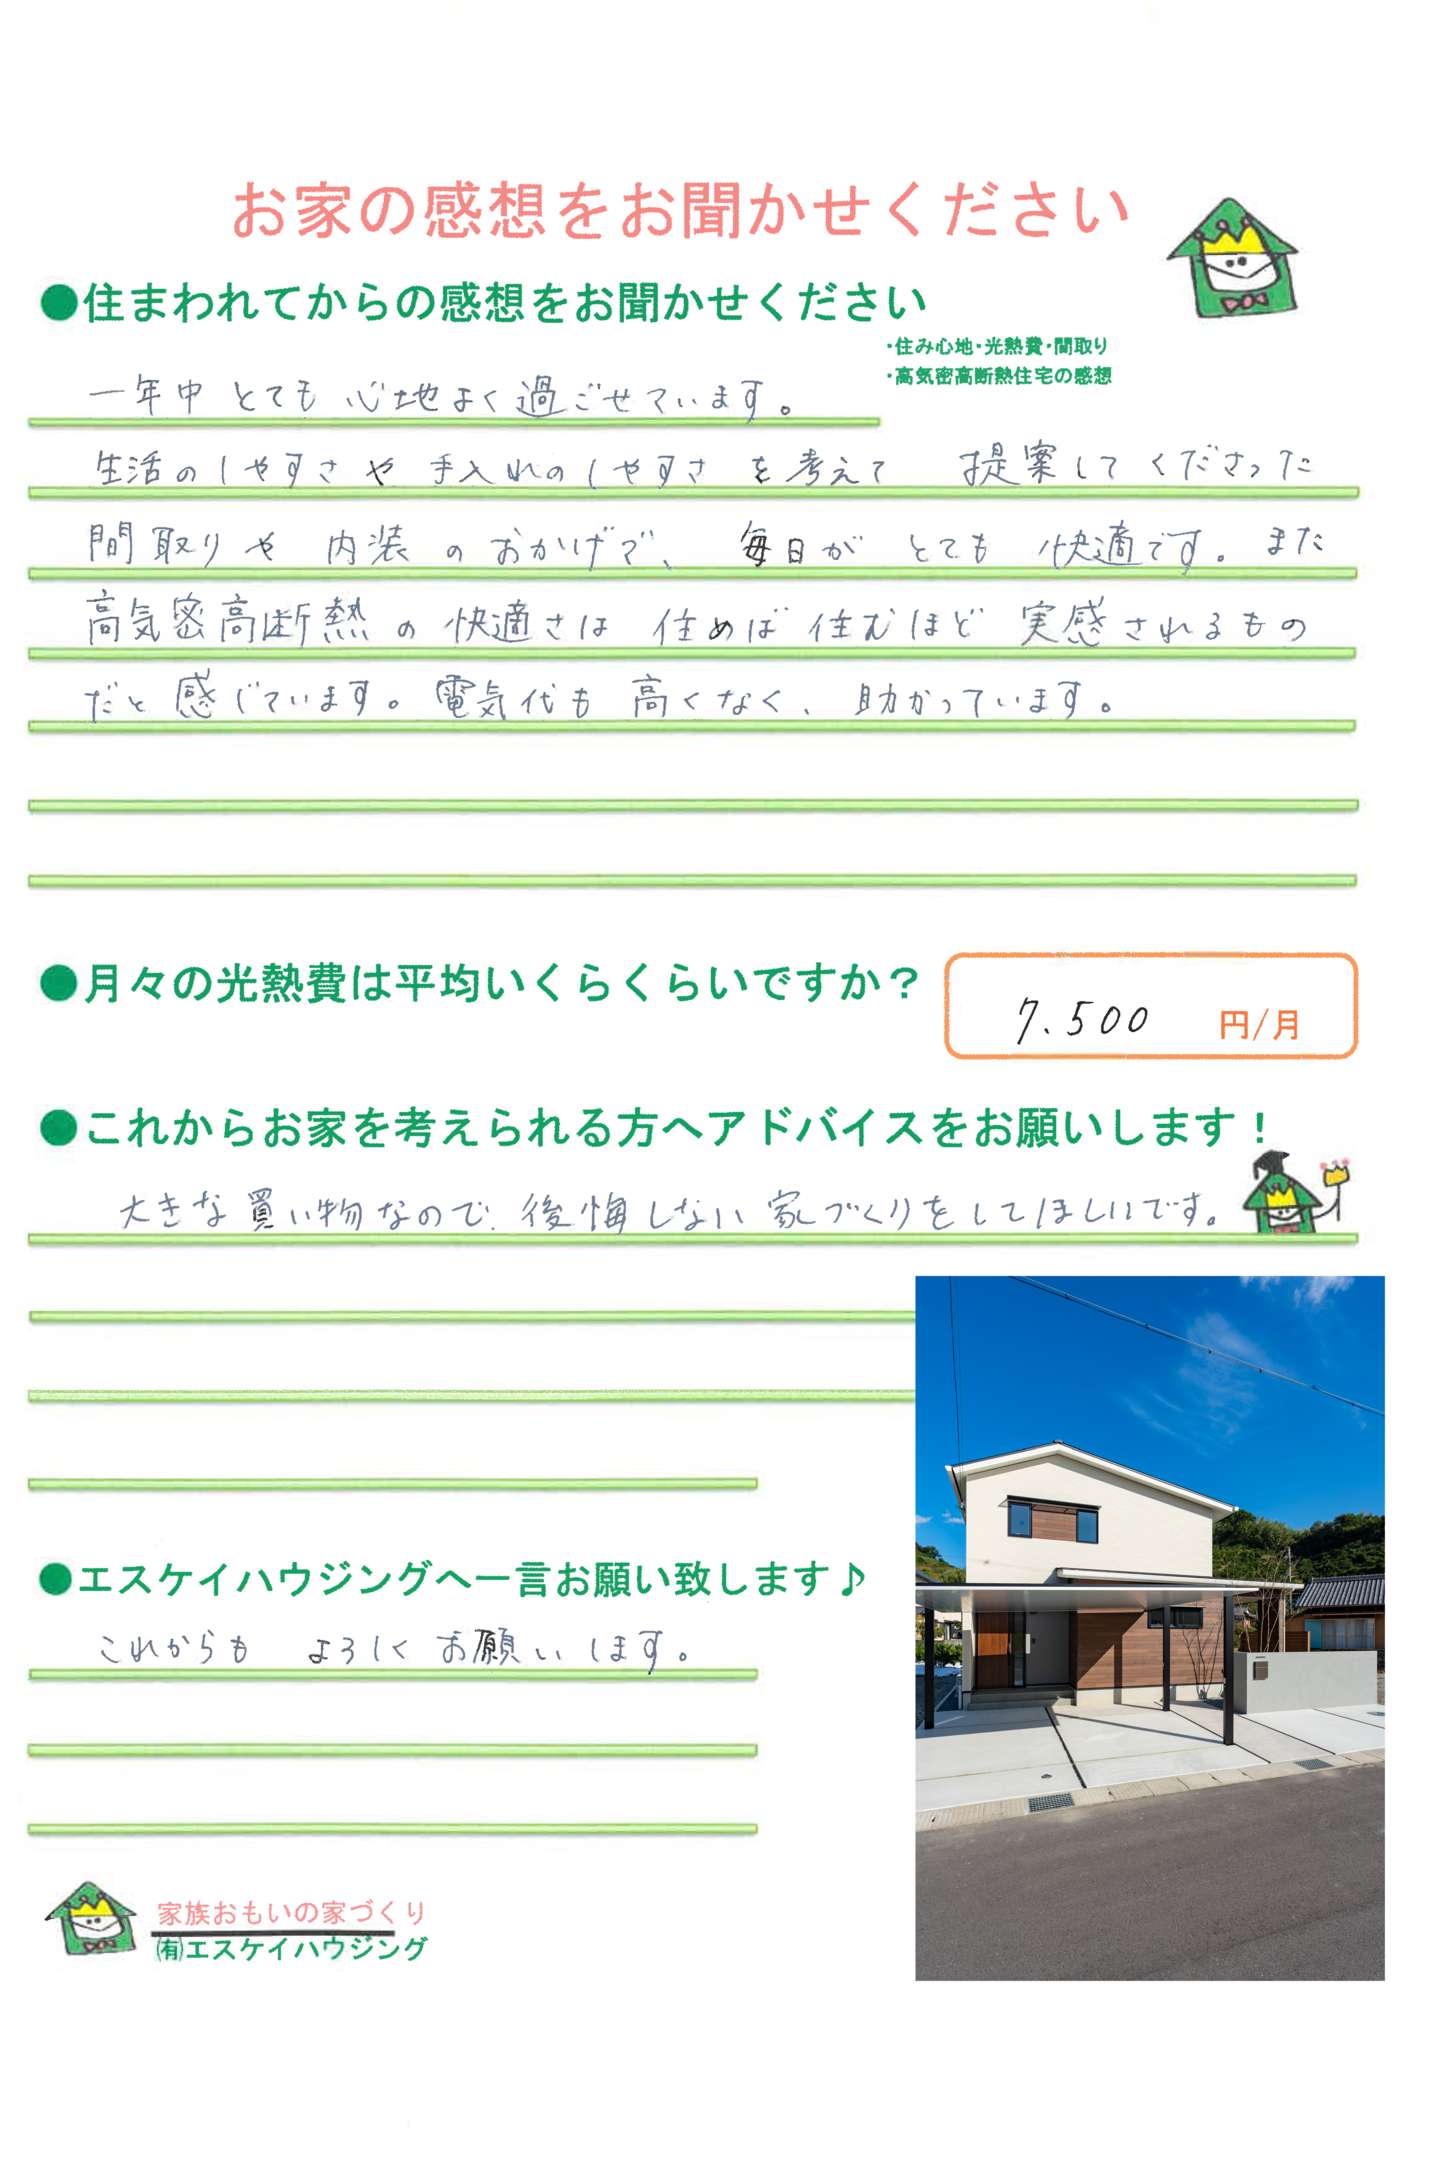 お家の感想をお聞かせください
●住まわれてからの感想をお聞かせください
・住み心地・光熱費・間取り
・高気密高断熱住宅の感想
一年中とても心地よく過ごせています。
生活のしやすさや手入れのしやすさを考えて 提案してくださった
間取りや内装のおかげで、毎日がとても快適です。また
高気密高断熱の快適さは住めば住むほど実感されるもの
だと感じています。電気代も高くなく、助かっています。
●月々の光熱費は平均いくらくらいですか？
7.500 円/月
●これからお家を考えられる方へアドバイスをお願いします！
大きな買い物なので、後悔しない家づくりをしてほしいです。
●エスケイハウジングへ一言お願い致します♪
これからも よろしくお願いします。
家族おもいの家づくり
㈲エスケイハウジング